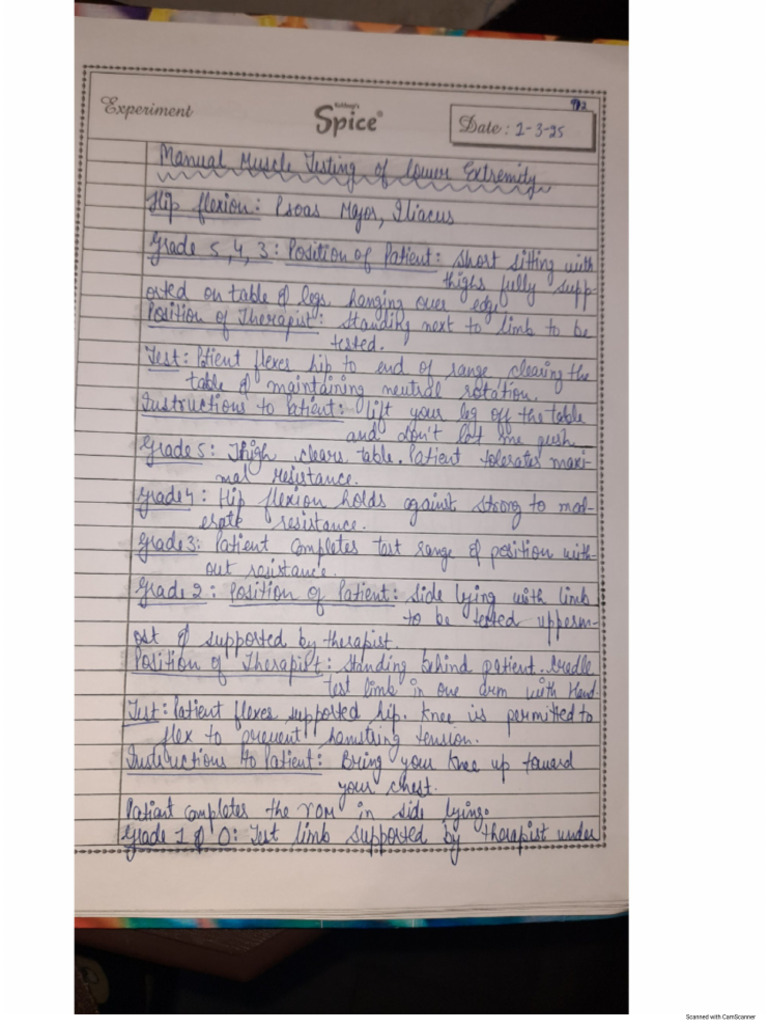 Experiment
Kohinoor's
Spice
Date: 2-3-25
Manual Muscle Testing of Lower Extremity
Hip flexion: Psoas Major, Iliacus
Grade 5, 4, 3: Position of Patient: Short sitting with
thighs fully supp-
orted on table & legs hanging over edge
Position of Therapist: Standing next to limb to be
tested.
Test: Patient flexes hip to end of range clearing the
table & maintaining neutral rotation.
Instructions to Patient: Lift your leg off the table
and don't let me push
Grade 5: Thigh clears table. Patient tolerates maxi-
mal resistance.
Grade 4: Hip flexion holds against strong to mod-
erate resistance.
Grade 3: Patient completes test range & position with-
out resistance.
Grade 2: Position of Patient: Side lying with limb
to be tested upperm-
ost & supported by therapist.
Position of Therapist: Standing behind patient. Cradle
test limb in one arm with Hand
Test: Patient flexes supported hip. Knee is permitted to
flex to prevent hamstring tension.
Instructions to Patient: Bring your knee up toward
your chest.
Patient completes the ROM in side lying.
Grade 1 & 0: Test limb supported by therapist under
Scanned with CamScanner